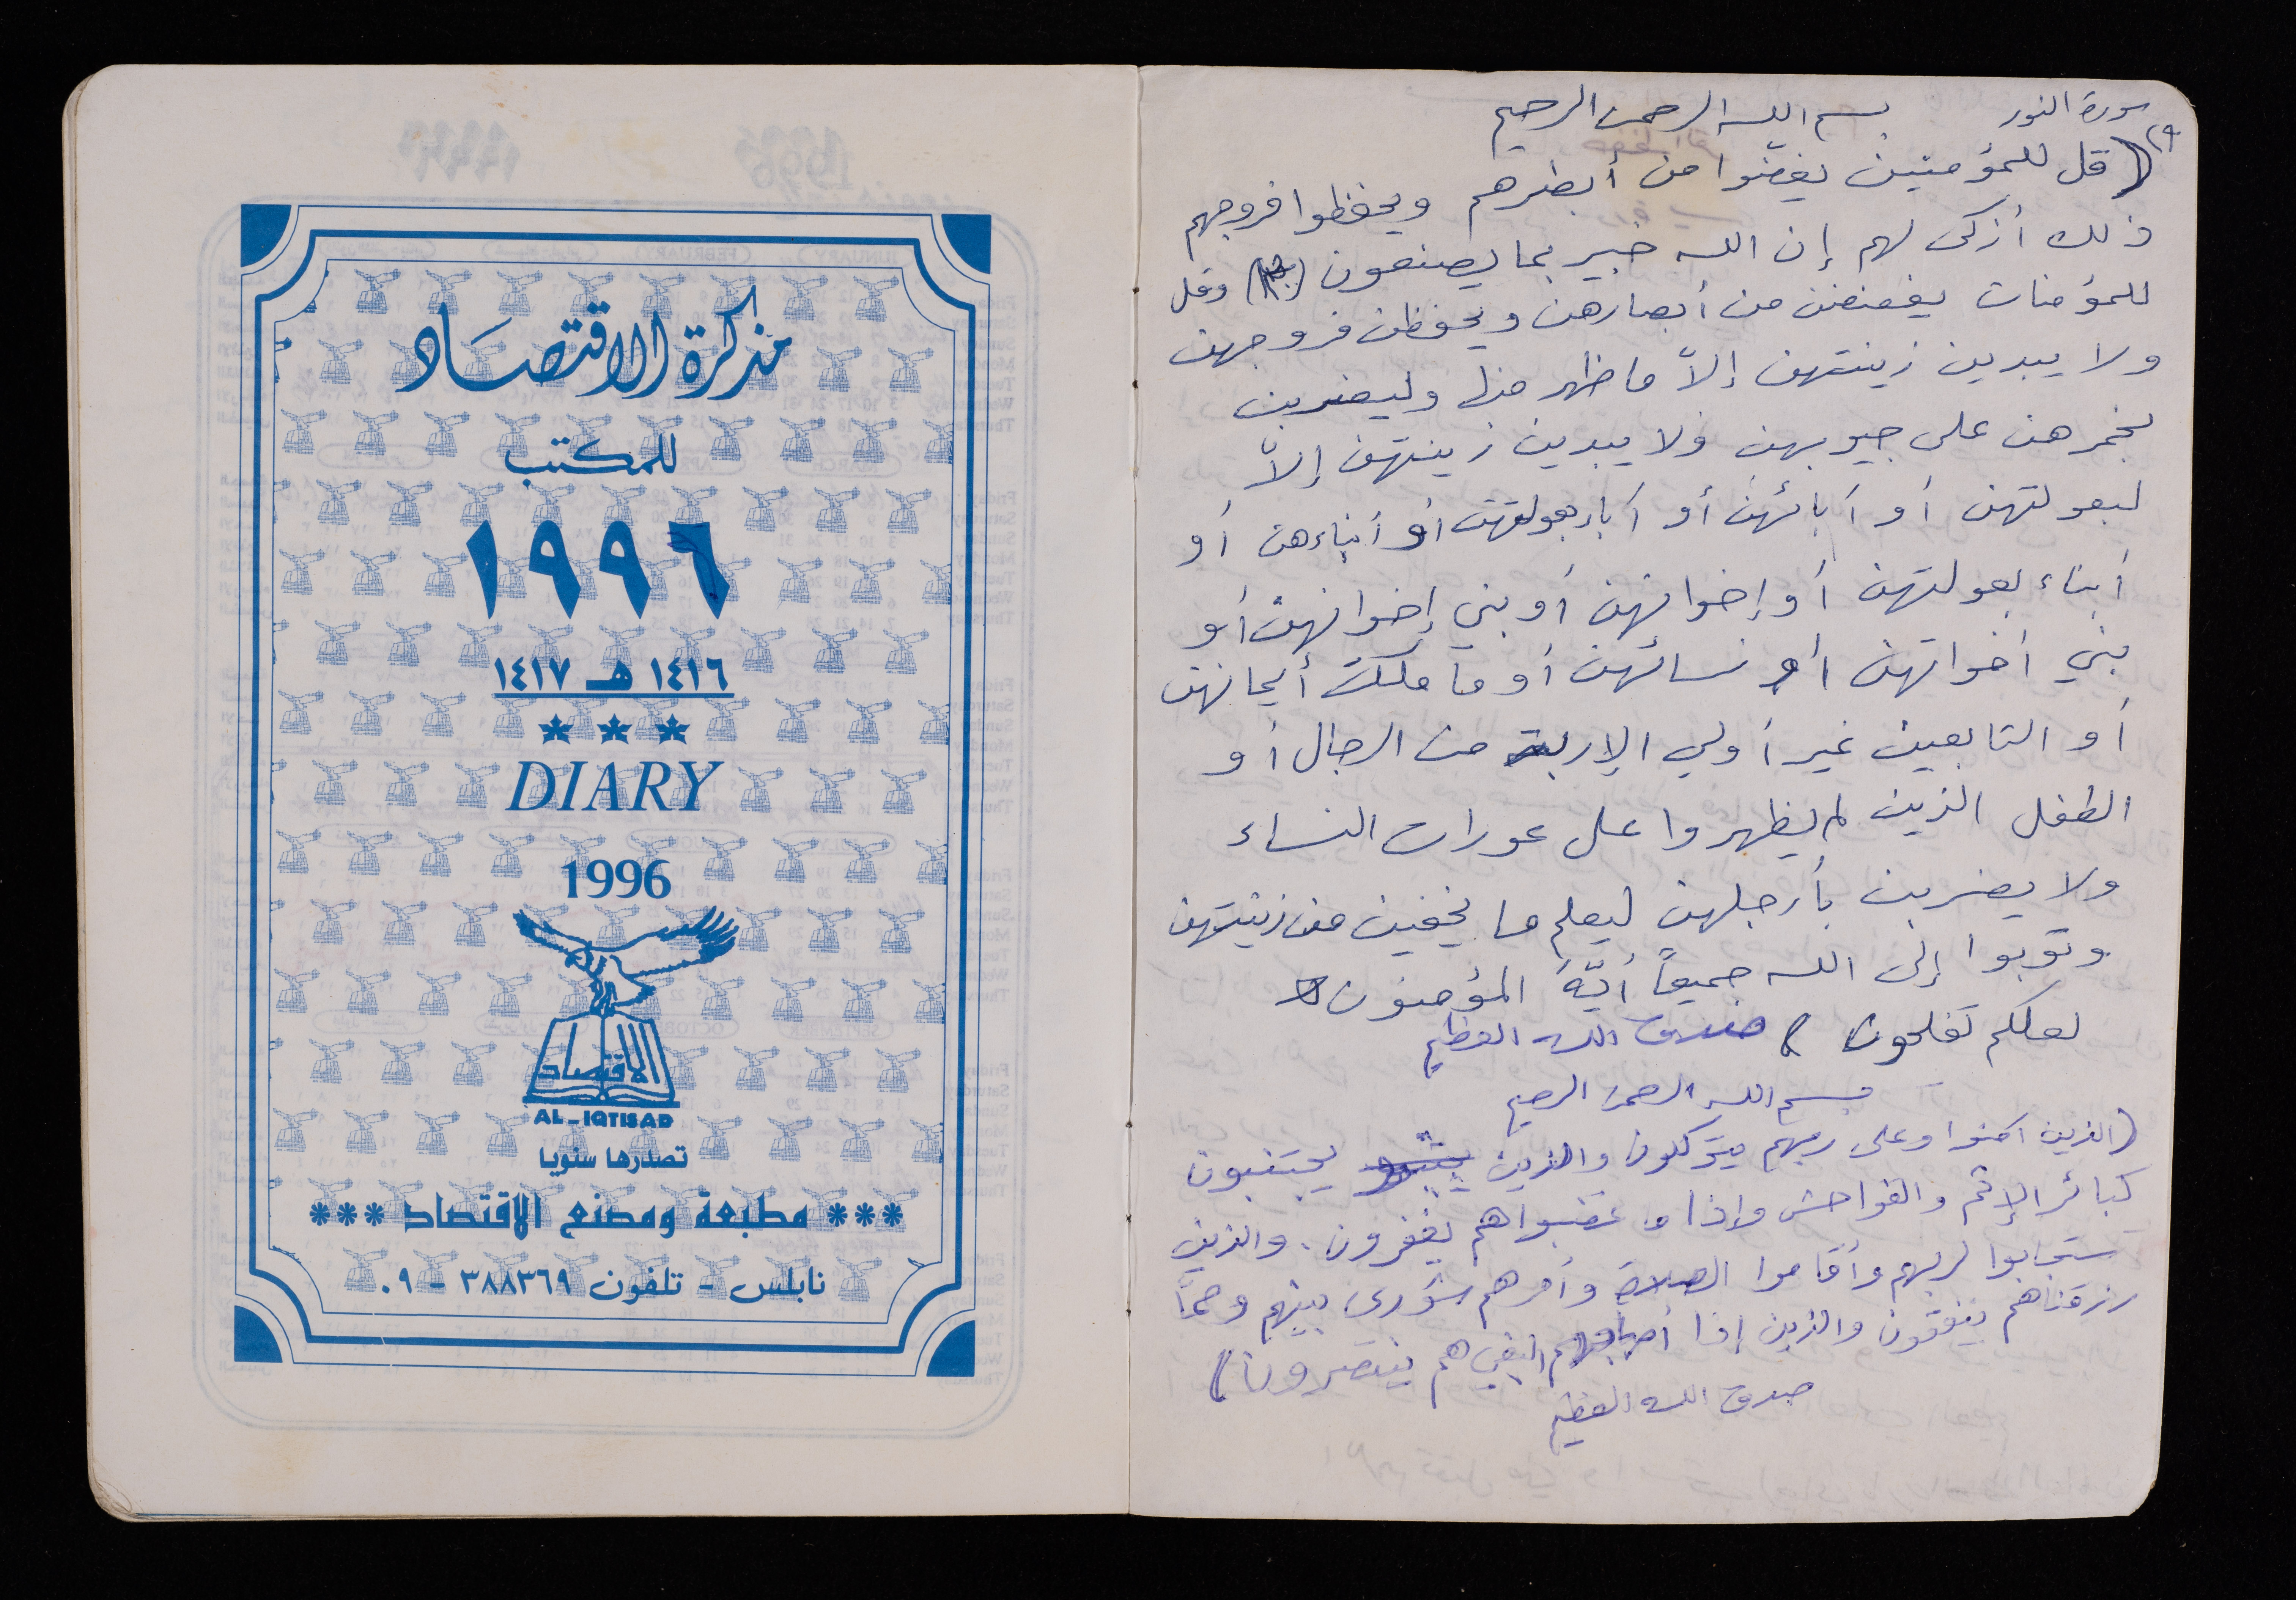 سورة النور بسم الله الرحمن الرحيم
(قل للمؤمنين يغضّوا من أبصرهم ويحفظوا فروجهم
ذلك أزكى لهم إن الله خبير بما يصنعون وقل
للمؤمنات يغضضن من أبصارهن ويحفظن فروجهن
ولا يبدين زينتهن إلاّ ما ظهر منها وليضربن
بخمرهن على جيوبهن ولا يبدين زينتهن إلاّ
لبعولتهن أو آبائهن أو آباء بعولتهن أو أبناءهن أو
أبناء بعولتهن أو إخوانهن أو بني إخوانهن أو
بني أخواتهن أو نسائهن أو ما ملكت أيمانهن
أو التابعين غير أولي الإربة من الرجال أو
الطفل الذين لم يظهروا على عورات النساء
ولا يضربن بأرجلهن ليعلم ما يخفين من زينتهن
وتوبوا إلى الله جميعاً أيّهَُ المؤمنون
لعلكم تفلحون) صدق الله العظيم
بسم الله الرحمن الرحيم
(الذين امنوا وعلى ربهم يتوكلون والذين يجتنبون
كبائر الإثم والفواحش وإذا ما غضبوا هم يغفرون. والذين
ستجابوا لربهم وأقاموا الصلاة وأمرهم شورى بينهم وممّا
رزقناهم ينفقون والذين إذا أصابهم البغي هم ينتصرون)
صدق الله العظيم
مذكرة الاقتصاد
للمكتب
١٩٩٦
١٤١٦ هـ ١٤١٧
***
DIARY
1996
الاقتصاد
AL-IQTISAD
تصدرها سنويا
*** مطبعة ومصنع الاقتصاد ***
نابلس - تلفون ٣٨٨٣٦٩ - ٠٩